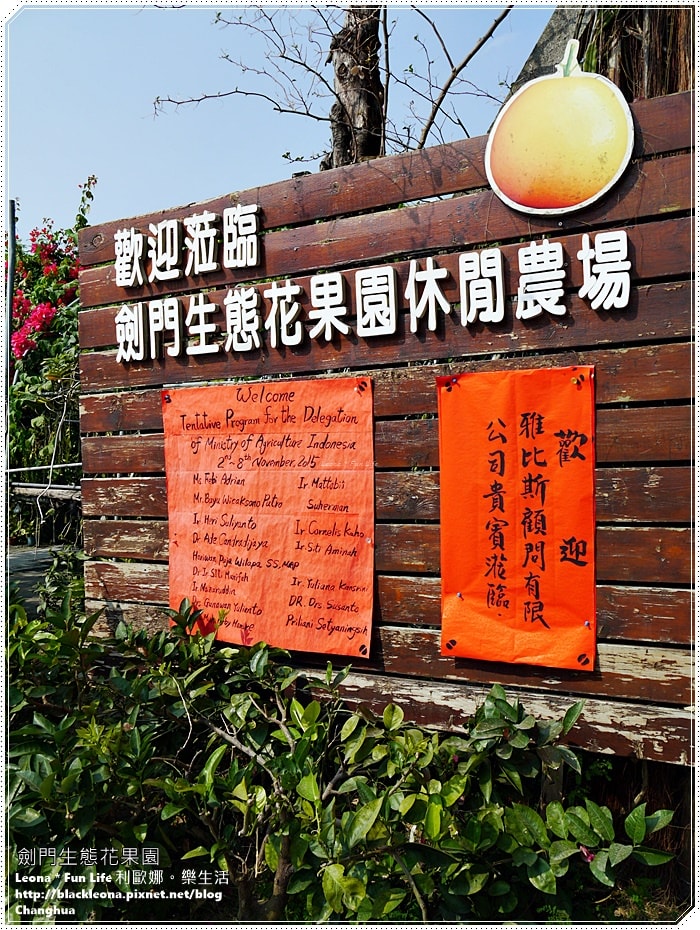 歡迎蒞臨
劍門生態花果園休閒農場
Welcome
Tentative Program for the Delegation
of Ministry of Agriculture Indonesia
2nd - 8th November, 2015
Ms Febi Adrian
Ir. Mattobii
Mr. Bayu Wicaksono Putro
Suherman
Ir Heri Suliyanto
Ir. Cornelis Kaho
Dr. Ade Candradijaya
Ir. Siti Aminah
Hariwan Puja Wilapa SS, MAP
Dr Ir Siti Marifah
Ir. Yuliana Kansrini
Ir Maharuddin
DR. Drs Susanto
Drs. Gunawan Yulianto
Priliani Setyaningsih
歡迎
雅比斯顧問有限
公司貴賓蒞臨.
劍門生態花果園
Leona * Fun Life 利歐娜。樂生活
http://blackleona.pixnet.net/blog
Changhua